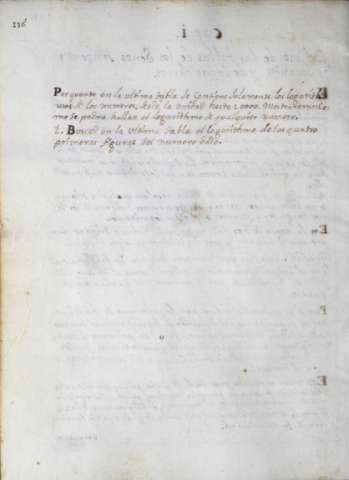 116
Por quanto en la ultima tabla de contiene solamente los logarit
mos de los numeros, desde la unidad hasta 10000. Mostraremos co
mo se podra hallar el logarithmo de qualquier numero.
1. Busca en la ultima tabla el logarithmo de las quatro
primeras figuras del numero dado.